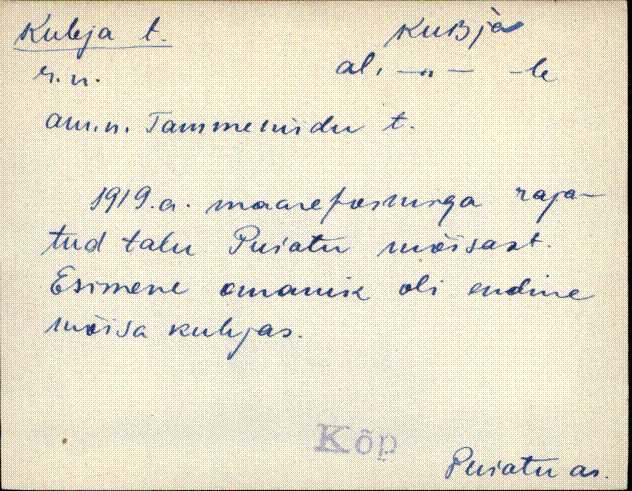 Kubja t.
KuBja
r.n.
al. —"— -le
am.n. Tammeniidu t.
1919.a. maareformiga raja-
tud talu Puiatu mõisast.
Esimene omanik oli endine
mõisa kubjas.
Kõp
Puiatu as.